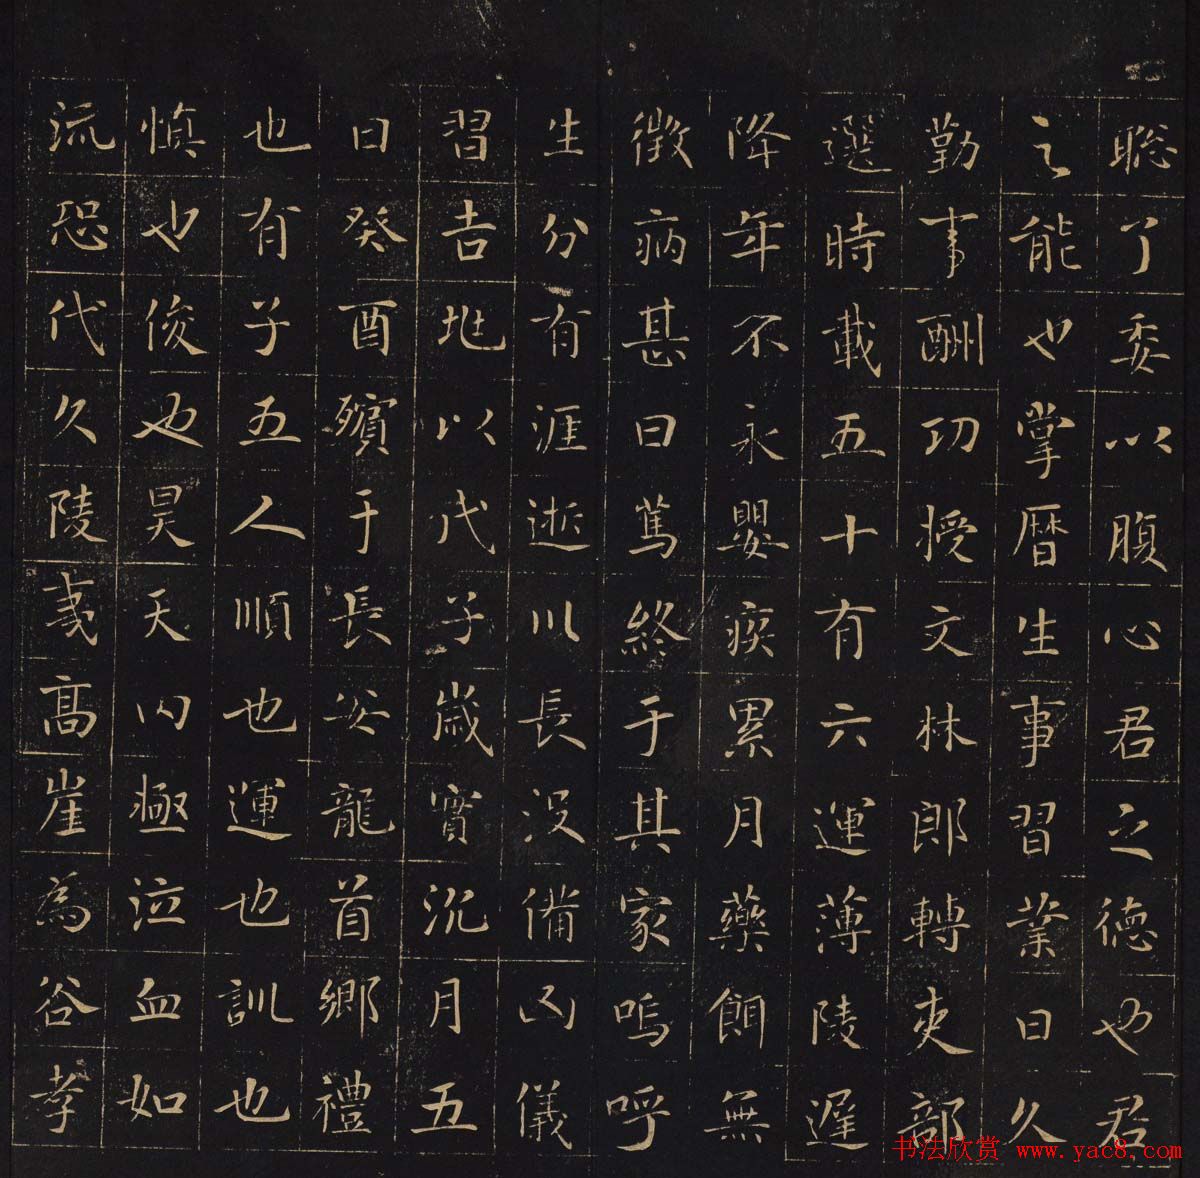 聡了委以腹心君之德也君
之能也掌曆生事習業日久
勤事酬功授文林郎轉吏部
選時載五十有六運薄陵遲
降年不永嬰疾累月藥餌無
徵病甚曰篤終于其家嗚呼
生分有涯逝川長没備凶儀
習吉地以戊子歲實沉月五
日癸酉殯于長安龍首鄉禮
也有子五人順也運也訓也
慎也俊也昊天内極泣血如
流恐代久陵夷高崖為谷孝
书法欣赏 www.yac8.com